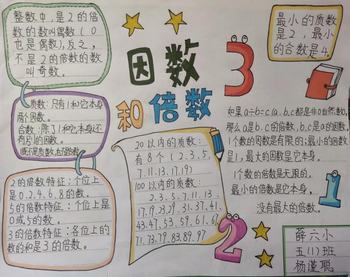 整数中,是2的倍
数的数叫偶数(0
也是偶数),反之,
不是2的倍数的数
叫奇数。
因数
和倍数
3
最小的质数
是2,最小
的合数是4。
质数:只有1和它本身
两个因数。
合数:除了1和它本身还
有别的因数。
2的倍数特征:个位上
是0.2.4.6.8的数。
5的倍数特征:个位上是
0或5的数。
3的倍数特征:各位上的
数的和是3的倍数。
20以内的质数:
有8个(2.3.5.
7.11.13.17.19)
100以内的质数:
2.3.5.7.11.13.
17.19.23.29.31.37.41.
43.47.53.59.61.67.
71.73.79.83.89.97
如果a÷b=c(a.b.c都是非0自然数),
那么a是b.c的倍数,b.c是a的因数。
1个数的因数是有限的;最小的因数
是1,最大的因数是它本身。
1个数的倍数是无限的,
最小的倍数是它本身,
没有最大的倍数。
1
2
薛六小
五(1)班